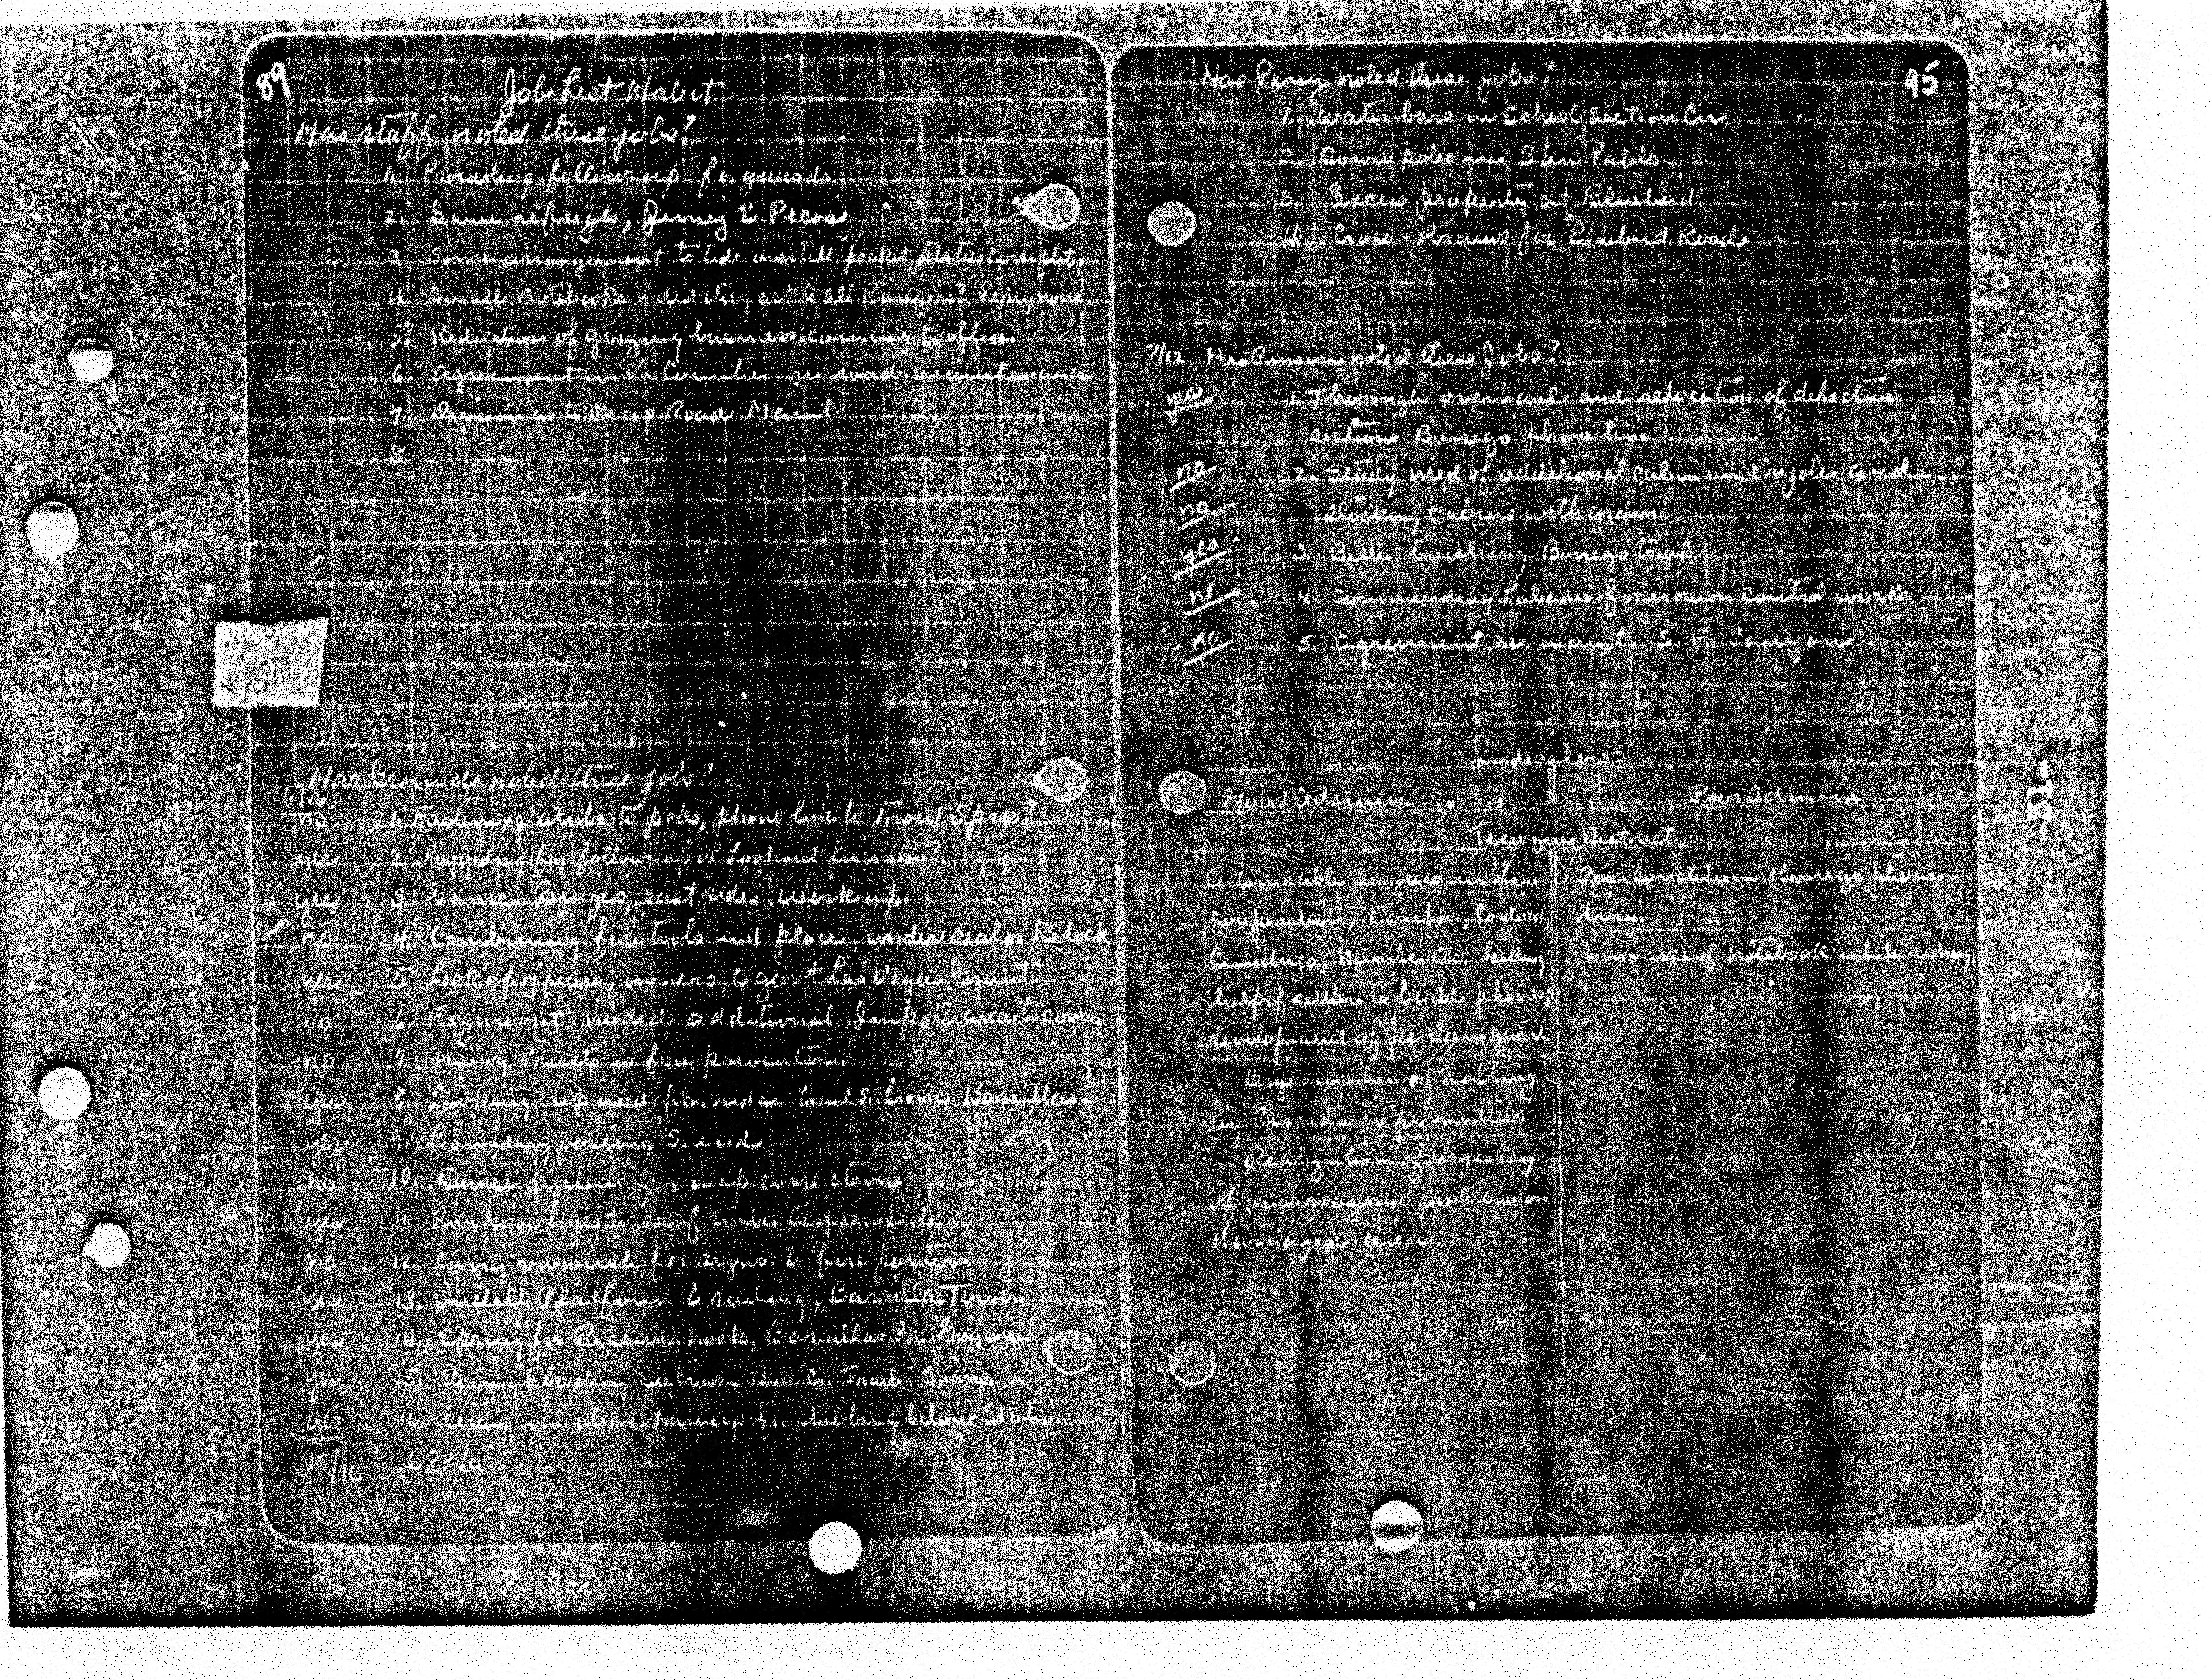 89
Job List Habit
Has staff noted these jobs?
1. Providing follow-up for guards.
2. Game refuges, Jemez & Pecos
3. Some arrangement to tide over till pocket status complete
4. Small Notebooks - did they get to all Rangers? Perry none.
5. Reduction of grazing business coming to office
6. Agreement with Counties re road maintenance
7. Decision as to Pecos Road Maint.
8.
Has Grounds noted these jobs?
6/16
no 1. Fastening stubs to poles, phone line to Trout Spgs?
yes 2. Providing for follow-up of Lookout firemen?
yes 3. Game Refuges, east side, work up.
no 4. Combining fire tools in 1 place, under seal or FS lock
yes 5. Look up officers, owners, & gov't Las Vegas Grant.
no 6. Figure out needed additional Imps & areas to cover.
no 7. Using Priests in fire prevention.
yes 8. Looking up need for ridge trail S. from Barillas.
yes 9. Boundary posting S. end
no 10. Devise system for map corrections
yes 11. Run lines to see if timber trespass exists.
no 12. Carry varnish for signs & fire posters
yes 13. Install Platform & railing, Barillas Tower.
yes 14. Spring for Receiver hook, Barillas Pk. Guywire
yes 15. Bull Cr. Trail Signs.
yes 16. Getting wire above for stubbing below Station
10/16 = 62%
95
Has Perry noted these Jobs?
1. Water bars in School Section Cn
2. Down poles in San Pablo
3. Excess property at Bluebird
4. Cross-drains for Bluebird Road
7/12 Has noted these Jobs?
yes 1. Thorough overhaul and relocation of defective
sections Borrego phone line
no 2. Study need of additional cabin on Frijoles and
no stocking cabins with grain.
yes 3. Better brushing Borrego trail
no 4. Commending Labadie for erosion control works.
no 5. Agreement re maint. S. F. Canyon
Indicators
Good Admin. Poor Admin.
Tesuque District
Admirable progress in fire
cooperation, Truchas, Cordova,
Cundiyo, Nambe etc. Getting
help of settlers to build phone,
development of per diem guard
Organization of salting
by Cundiyo permittees
Realization of urgency
of overgrazing problem on
damaged areas.
Poor condition Borrego phone
line.
Non-use of notebook while riding.
-31-